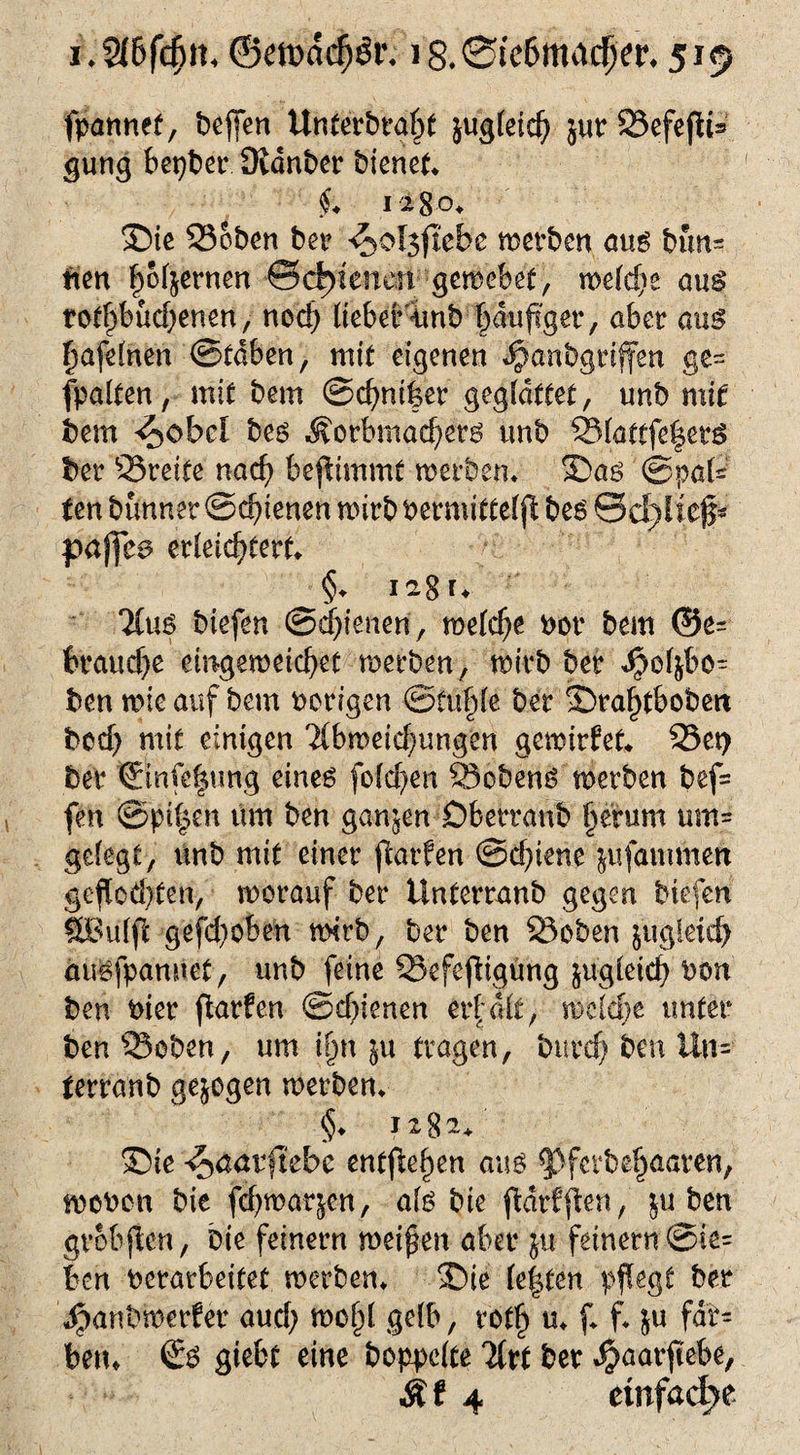 1. Abschn. Gewächsr. 18. Siebmacher. 519
spannet, dessen Unterdraht zugleich zur Befesti=
gung beyder Ränder dienet.
§. 1280.
Die Böden der Holzsiebe werden aus dün=
nen hölzernen Schienen gewebet, welche aus
rothbüchenen, noch lieber und häufiger, aber aus
haselnen Stäben, mit eigenen Handgriffen ge=
spalten, mit dem Schnitzer geglättet, und mit
dem Hobel des Korbmachers und Blattsetzers
der Breite nach bestimmt werden. Das Spal=
ten dünner Schienen wird vermittelst des Schließ=
passes erleichtert.
§. 1281.
Aus diesen Schienen, welche vor dem Ge=
brauche eingeweichet werden, wird der Holzbo=
den wie auf dem vorigen Stuhle der Drahtboden
doch mit einigen Abweichungen gewirket. Bey
der Einsetzung eines solchen Bodens werden des=
sen Spitzen um den ganzen Oberrand herum um=
gelegt, und mit einer starken Schiene zusammen
geflochten, worauf der Unterrand gegen diesen
Wulst geschoben wird, der den Boden zugleich
ausspannet, und seine Befestigung zugleich von
den vier starken Schienen erhält, welche unter
den Boden, um ihn zu tragen, durch den Un=
terrand gezogen werden.
§. 1282.
Die Haarsiebe entstehen aus Pferdehaaren,
wovon die schwarzen, als die stärksten, zu den
gröbsten, die feinern weißen aber zu feinern Sie=
ben verarbeitet werden. Die letzten pflegt der
Handwerker auch wohl gelb, roth u. s. f. zu fär=
ben. Es giebt eine doppelte Art der Haarsiebe,
Kk 4 einfache